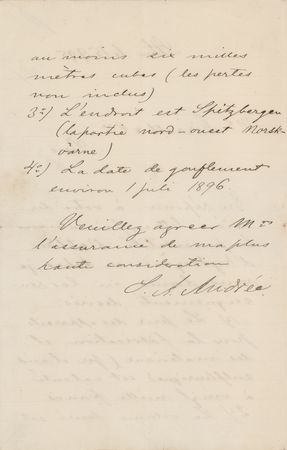 au moins six milles
mètras cubas (les pertes
non inclus)
3:) L'endroit est Spitzbergen
(la partie nord-ouest Norsk-
öarne)
4:) La date de gonflement
environ 1 juli 1896
Veuillez agreer Mr
l'assurance de ma plus
haute consideration
S. A. Andrée.